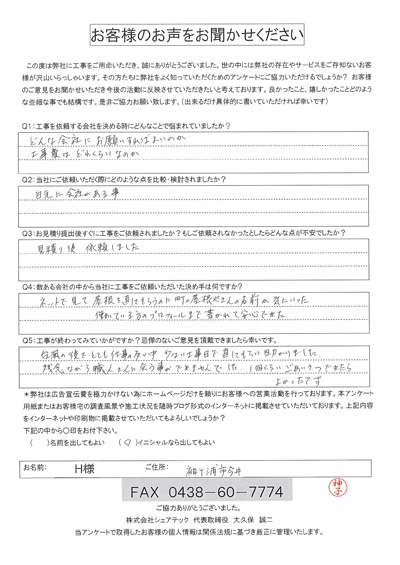 お客様のお声をお聞かせください
この度は弊社に工事をご用命いただき、誠にありがとうございました。世の中には弊社の存在やサービスをご存知ないお客
様が沢山いらっしゃいます。その方たちに弊社をよく知っていただくためのアンケートにご協力いただけるでしょうか？ お客様
のご意見をお聞かせいただき今後の活動に反映させていただきたいと考えております。良かったこと、嬉しかったことどのよう
な些細な事でも結構です。是非ご協力お願い致します。（出来るだけ具体的に書いていただければ幸いです）
Q1：工事を依頼する会社を決める時にどんなことで悩まれていましたか？
どんな会社にお願いすればよいのか
工事費はどれくらいなのか
Q2：当社にご依頼いただく際にどのような点を比較・検討されましたか？
自宅に会社がある事
Q3：お見積り提出後すぐに工事をご依頼されましたか？もしご依頼されなかったとしたらどんな点が不安でしたか？
見積り後 依頼しました
Q4：数ある会社の中から当社に工事をご依頼いただいた決め手は何ですか？
ネットで見て屋根を直してもらうのに町の屋根やさんの名前が気にいった
働いている方のプロフィールまで書かれて安心できた
Q5：工事が終わってみていかがですか？忌憚のないご意見を頂戴できましたら幸いです。
台風の後でとても仕事が多い中 少ない日で直してもらい助かりました
残念ながら職人さんに会う事ができませんでした 1回くらいごあいさつできたら
よかったです
＊弊社は広告宣伝費を極力かけない為にホームページだけを頼りにお客様への営業活動を行っております。本アンケート
用紙またはお客様宅の調査風景や施工状況を随時ブログ形式のインターネットに掲載させていただいております。上記内容
をインターネットや印刷物に掲載させていただいてもよろしいでしょうか？
下記の中から〇印をお付下さい。
（ ）名前を出してもよい （〇）イニシャルなら出してもよい
お名前： H様 ご住所： 袖ケ浦市今井
FAX 0438－60－7774
ご協力ありがとうございました。
株式会社シェアテック 代表取締役 大久保 誠二
当アンケートで取得したお客様の個人情報は関係法規に基づき厳正に管理いたします。